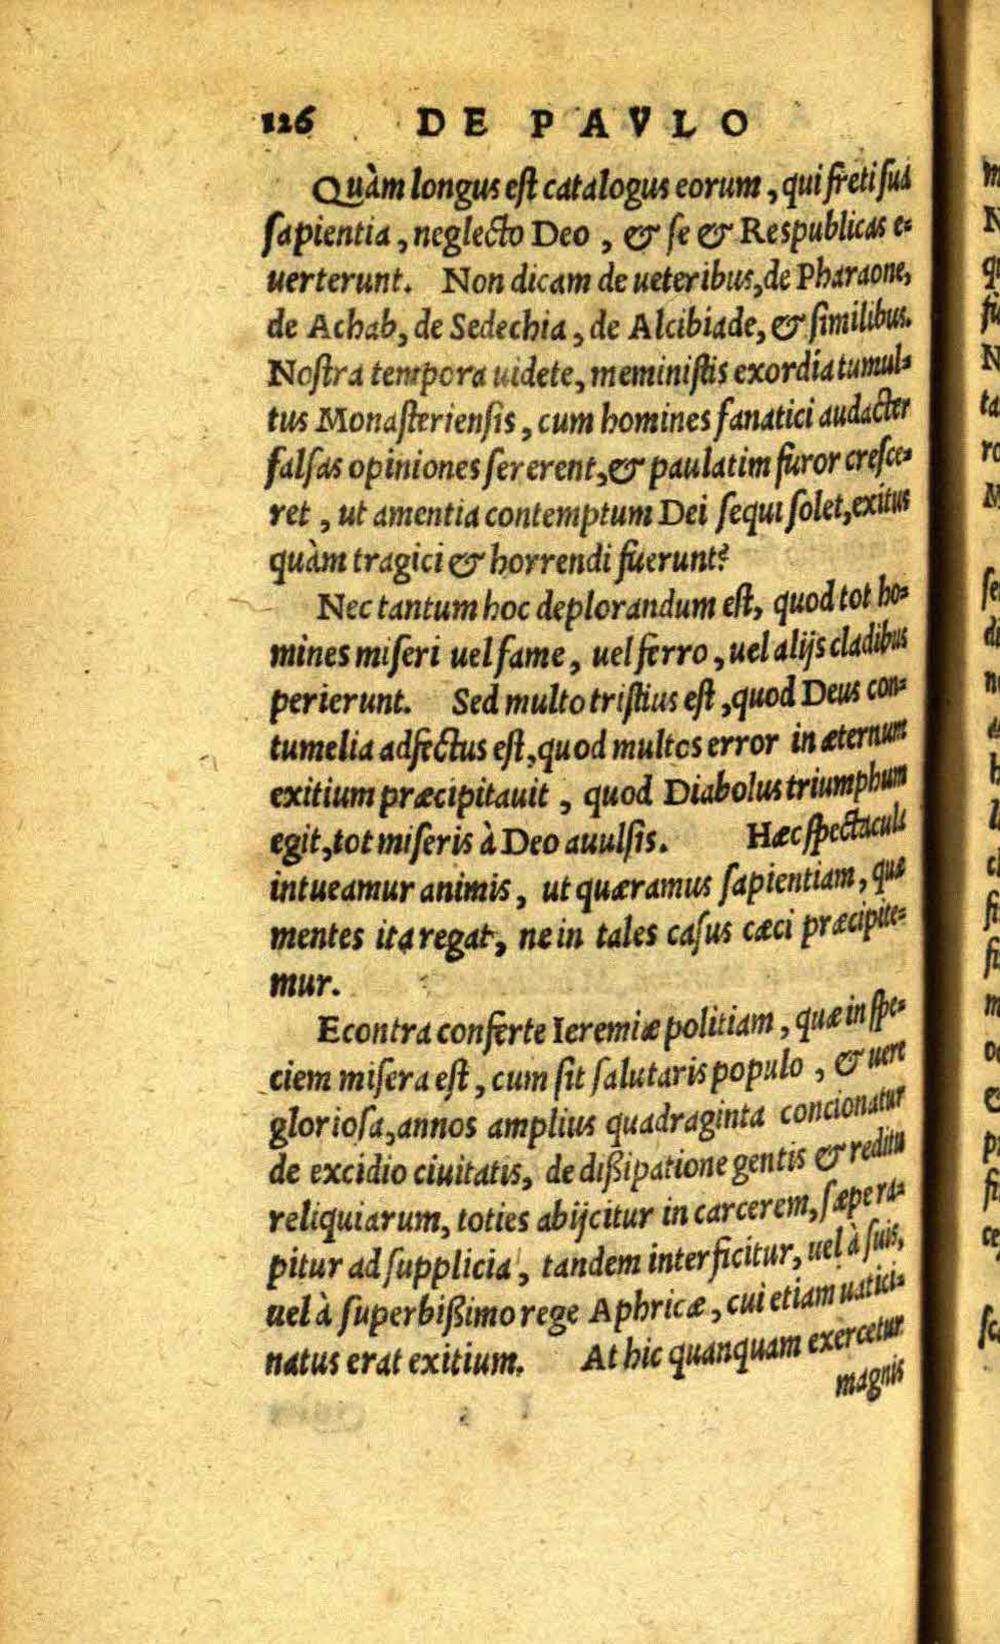 126 DE PAVLO
Quàm longus est catalogus eorum, qui freti sua
sapientia, neglecto Deo, & se & Respublicas e-
uerterunt. Non dicam de ueteribus, de Pharaone,
de Achab, de Sedechia, de Alcibiade, & similibus.
Nostra tempora uidete, meministis exordia tumul-
tus Monasteriensis, cum homines fanatici audacter
falsas opiniones sererent, & paulatim furor cresce-
ret, ut amentia contemptum Dei sequi solet, exitus
quàm tragici & horrendi fuerunt?
Nec tantum hoc deplorandum est, quod tot ho-
mines miseri uel fame, uel ferro, uel alijs cladibus
perierunt. Sed multo tristius est, quod Deus con-
tumelia adfectus est, quod multos error in æternum
exitium præcipitauit, quod Diabolus triumphum
egit, tot miseris à Deo auulsis. Hæc spectacula
intueamur animis, ut quæramus sapientiam, quæ
mentes ita regat, ne in tales casus cæci præcipite-
mur.
Econtra conferte Ieremiæ politiam, quæ in spe-
ciem misera est, cum sit salutaris populo, & uere
gloriosa, annos amplius quadraginta concionatur
de excidio ciuitatis, de dißipatione gentis & reditu
reliquiarum, toties abijcitur in carcerem, sæpe ra-
pitur ad supplicia, tandem interficitur, uel à suis,
uel à superbißimo rege Aphricæ, cui etiam uatici-
natus erat exitium. At hic quanquam exercetur
magnis